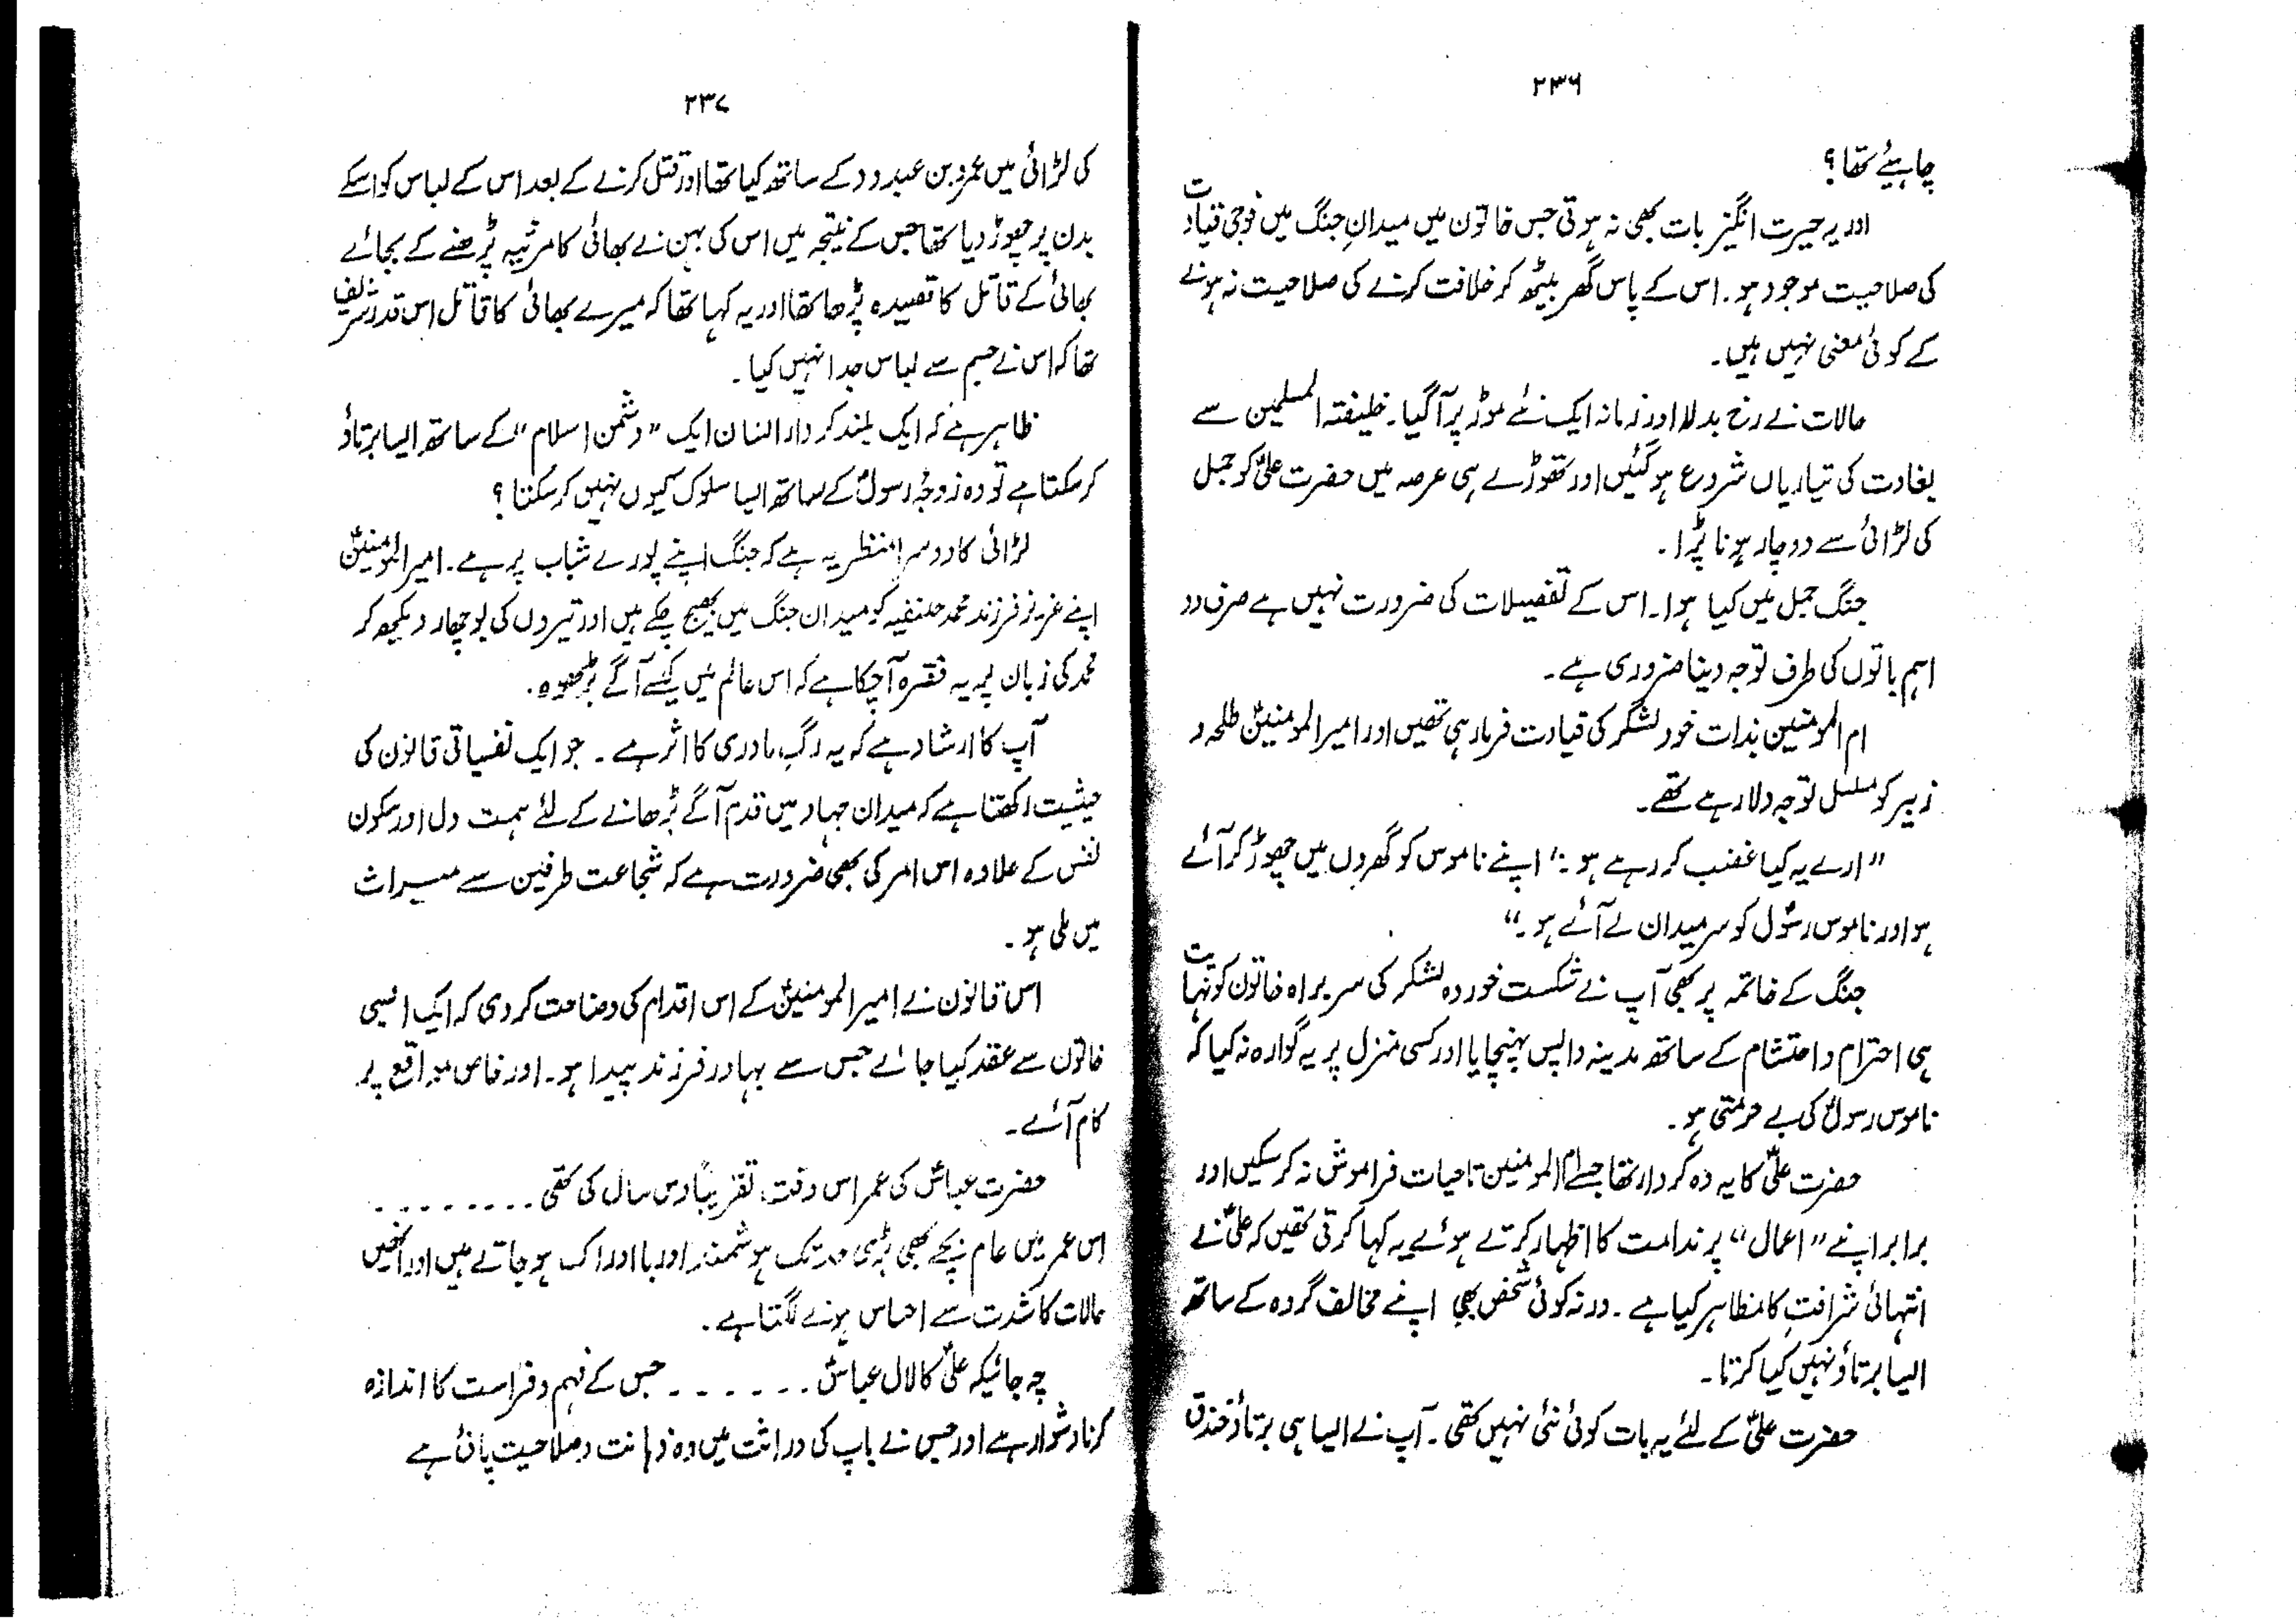 ۲۳۶
چاہیئے تھا؟
اور یہ حیرت انگیز بات بھی نہ ہوتی جس خاتون میں میدانِ جنگ میں فوجی قیادت
کی صلاحیت موجود ہو۔ اس کے پاس گھر بیٹھ کر خلافت کرنے کی صلاحیت نہ ہونے
کے کوئی معنی نہیں ہیں۔
حالات نے رخ بدلا اور زمانہ ایک نئے موڑ پر آگیا۔ خلیفتہ المسلمین سے
بغاوت کی تیاریاں شروع ہوگئیں اور تھوڑے ہی عرصہ میں حضرت علیؑ کو جمل
کی لڑائی سے دوچار ہونا پڑا۔
جنگ جمل میں کیا ہوا۔ اس کے تفصیلات کی ضرورت نہیں ہے صرف دو
اہم باتوں کی طرف توجہ دینا ضروری ہے۔
ام المومنین بذات خود لشکر کی قیادت فرما رہی تھیں اور امیر المومنینؑ طلحہ و
زبیر کو مسلسل توجہ دلا رہے تھے۔
"ارے یہ کیا غضب کر رہے ہو؟" اپنے ناموس کو گھروں میں چھوڑ کر آئے
ہو اور ناموس رسولؐ کو سرمیدان لے آئے ہو۔"
جنگ کے خاتمہ پر بھی آپ نے شکست خوردہ لشکر کی سربراہ خاتون کو نہایت
ہی احترام و احتشام کے ساتھ مدینہ واپس پہنچایا اور کسی منزل پر یہ گوارہ نہ کیا کہ
ناموس رسولؐ کی بے حرمتی ہو۔
حضرت علیؑ کا یہ وہ کردار تھا جسے ام المومنین تاحیات فراموش نہ کرسکیں اور
برابر اپنے "اعمال" پر ندامت کا اظہار کرتے ہوئے یہ کہا کرتی تھیں کہ علیؑ نے
انتہائی شرافت کا مظاہر کیا ہے۔ ورنہ کوئی شخص بھی اپنے مخالف گروہ کے ساتھ
ایسا برتاؤ نہیں کیا کرتا۔
حضرت علیؑ کے لئے یہ بات کوئی نئی نہیں تھی۔ آپ نے ایسا ہی برتاؤ خندق
۲۳۷
کی لڑائی میں عمرو بن عبدود کے ساتھ کیا تھا اور قتل کرنے کے بعد اس کے لباس کو اسکے
بدن پر چھوڑ دیا تھا جس کے نتیجہ میں اس کی بہن نے بھائی کا مرثیہ پڑھنے کے بجائے
بھائی کے قاتل کا قصیدہ پڑھا تھا اور یہ کہا تھا کہ میرے بھائی کا قاتل اس قدر شریف
تھا کہ اس نے جسم سے لباس جدا نہیں کیا۔
ظاہر ہے کہ ایک بلند کردار انسان ایک "دشمن اسلام" کے ساتھ ایسا برتاؤ
کرسکتا ہے تو وہ زوجۂ رسولؐ کے ساتھ ایسا سلوک کیوں نہیں کرسکتا؟
لڑائی کا دوسرا منظر یہ ہے کہ جنگ اپنے پورے شباب پر ہے۔ امیر المومنینؑ
اپنے عزیز فرزند محمد حنفیہ کو میدان جنگ میں بھیج چکے ہیں اور تیروں کی بوچھار دیکھ کر
محمد کی زبان پر یہ فقرہ آچکا ہے کہ اس عالم میں کیسے آگے بڑھوں۔
آپ کا ارشاد ہے کہ یہ رگِ مادری کا اثر ہے۔ جو ایک نفسیاتی قانون کی
حیثیت رکھتا ہے کہ میدان جہاد میں قدم آگے بڑھانے کے لئے ہمت دل اور سکون
نفس کے علاوہ اس امر کی بھی ضرورت ہے کہ شجاعت طرفین سے میراث
میں ملی ہو۔
اس قانون نے امیر المومنینؑ کے اس اقدام کی وضاحت کردی کہ ایک ایسی
خاتون سے عقد کیا جائے جس سے بہادر فرزند پیدا ہو۔ اور خاص مواقع پر
کام آئے۔
حضرت عباسؑ کی عمر اس وقت تقریباً دس سال کی تھی۔۔۔۔۔۔۔۔۔
اس عمر میں عام بچے بھی بڑی حد تک ہوشمند اور با ادراک ہو جاتے ہیں اور انھیں
حالات کا شدت سے احساس ہونے لگتا ہے۔
چہ جائیکہ علیؑ کا لال عباسؑ۔۔۔۔۔۔ جس کے فہم و فراست کا اندازہ
کرنا دشوار ہے اور جس نے باپ کی وراثت میں وہ ذہانت و صلاحیت پائی ہے